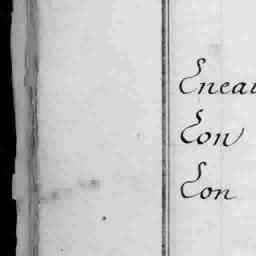 Eneau
Eon
Eon